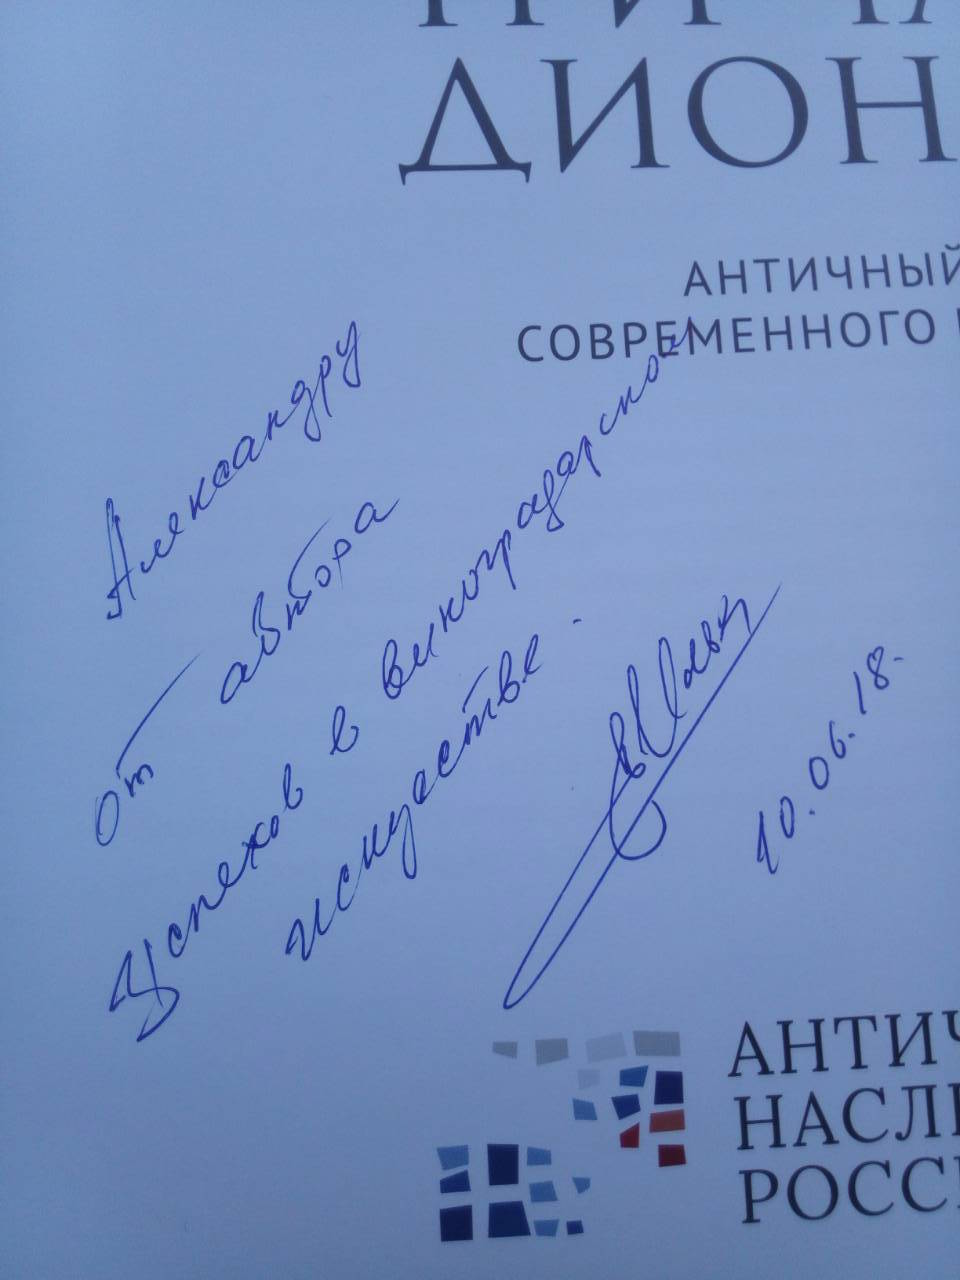 ДИОН
АНТИЧНЫЙ
СОВРЕМЕННОГО
Александру
от автора
Успехов в виноградарском
искусстве.
10.06.18.
АНТИЧ
НАСЛЕ
РОССИ